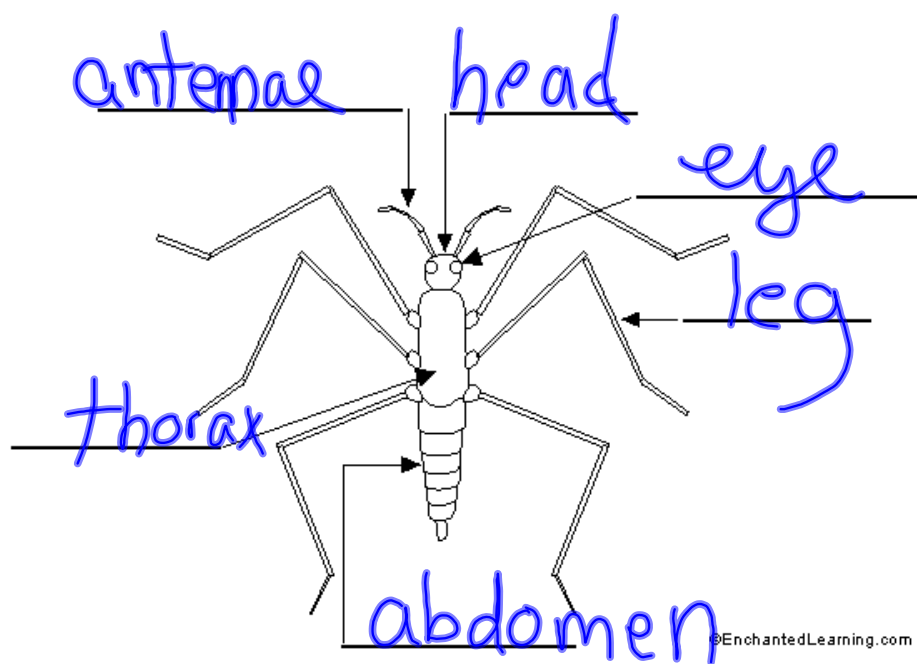 antennae
head
eye
leg
thorax
abdomen
©EnchantedLearning.com